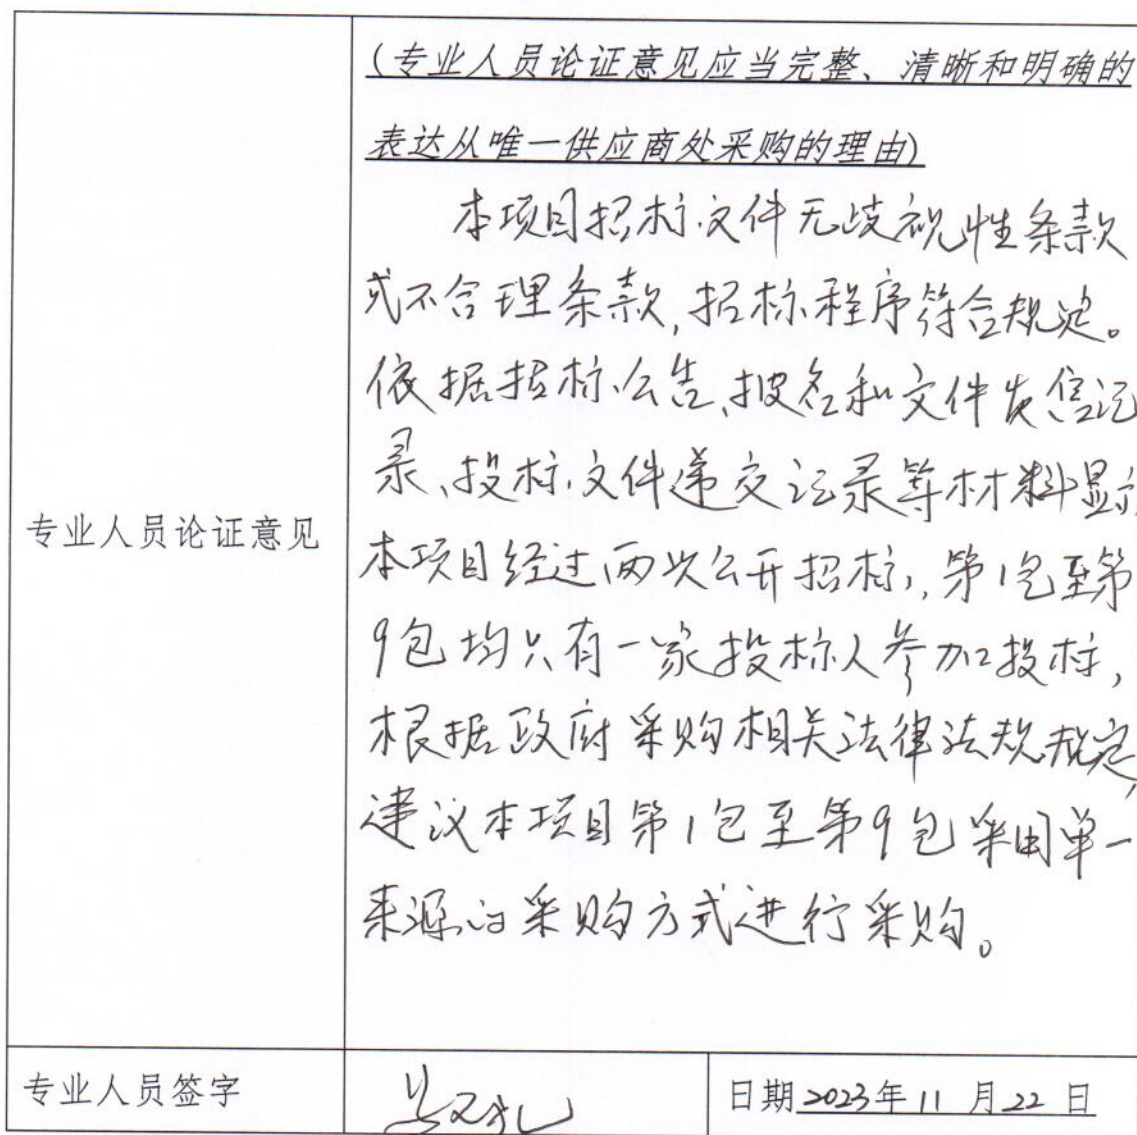 (专业人员论证意见应当完整、清晰和明确的
表达从唯一供应商处采购的理由)
本项目招标文件无歧视性条款
或不合理条款,招标程序符合规定。
依据招标公告、报名和文件发售记
录、投标文件递交记录等材料显示
专业人员论证意见
本项目经过两次公开招标,第1包至第
9包均只有一家投标人参加投标,
根据政府采购相关法律法规规定,
建议本项目第1包至第9包采用单一
来源的采购方式进行采购。
专业人员签字
日期 2023年 11 月 22 日